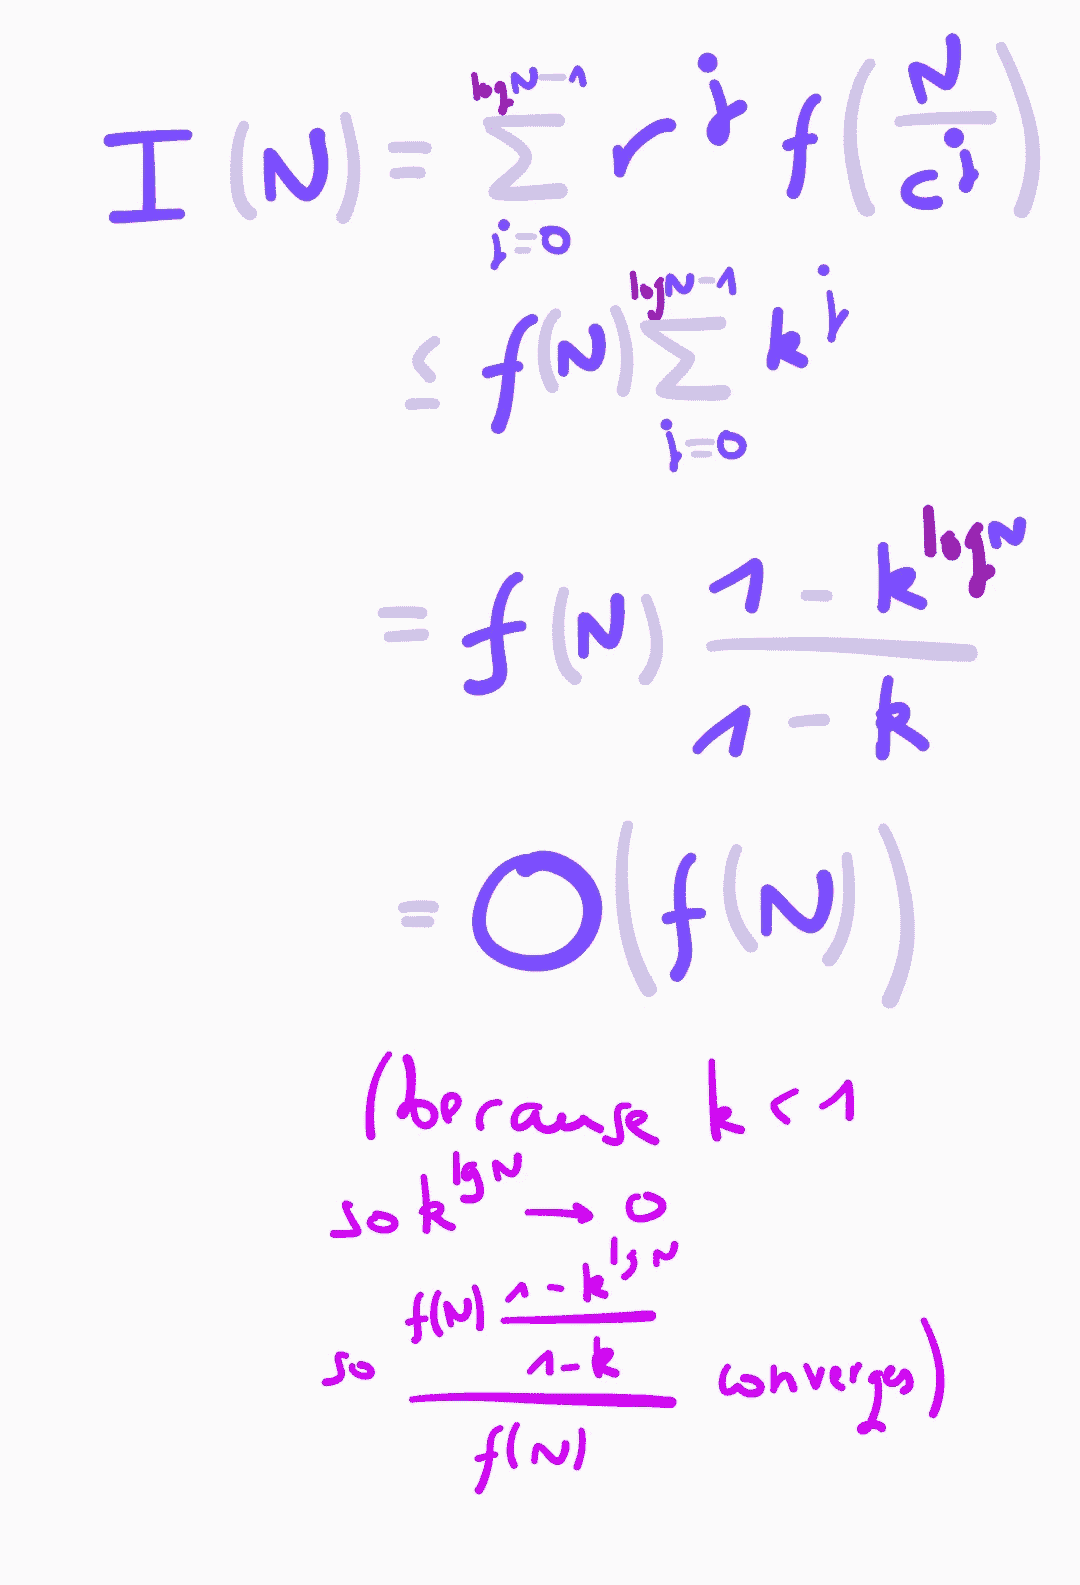 I(N) = \sum_{j=0}^{log N-1} r^j f(N/c^j)
≤ f(N) \sum_{j=0}^{log N-1} k^j
= f(N) (1 - k^{log N})/(1 - k)
= O(f(N))
(because k < 1
so k^{lg N} → 0
so (f(N) (1 - k^{lg N})/(1 - k))/(f(N)) converges)